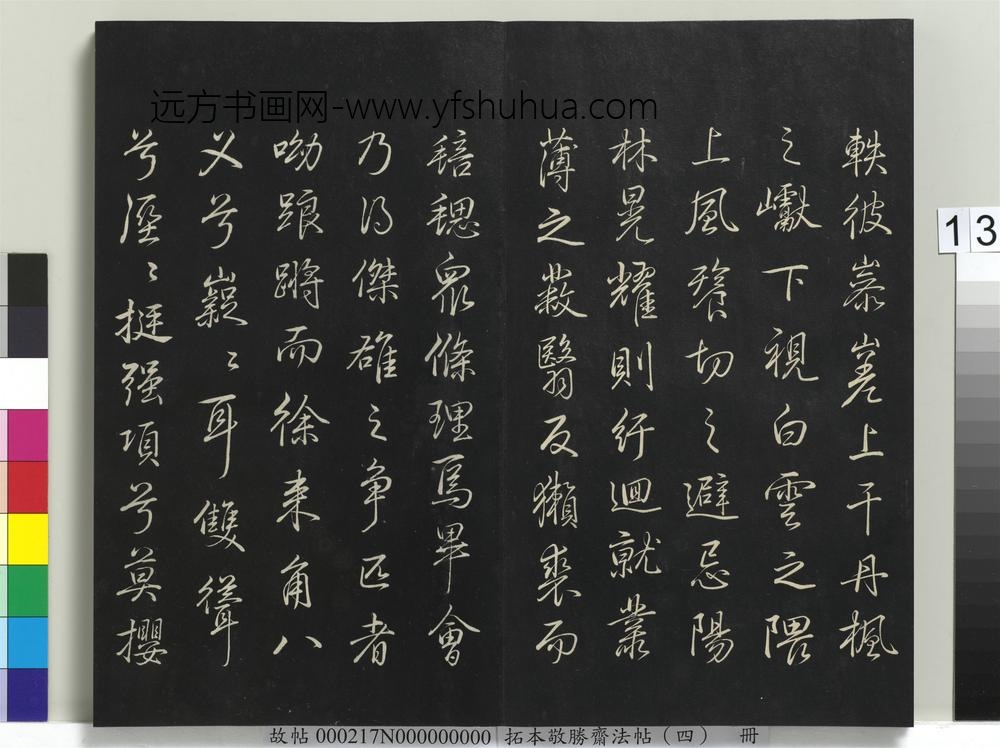 軼彼嶪嵳上干丹楓
之巘下視白雲之隈
上風飱切之避忌陽
林晃耀則紆迴就叢
薄之蔽翳反獺裘而
䅧穏衆條理焉畢會
乃得傑雄之争匹者
呦踉蹡而徐来角八
乂兮嶷〻耳雙聳
兮溼〻挺强項兮莫攖
远方书画网-www.yfshuhua.com
13
故帖 000217N000000000 拓本敬勝齋法帖（四） 冊